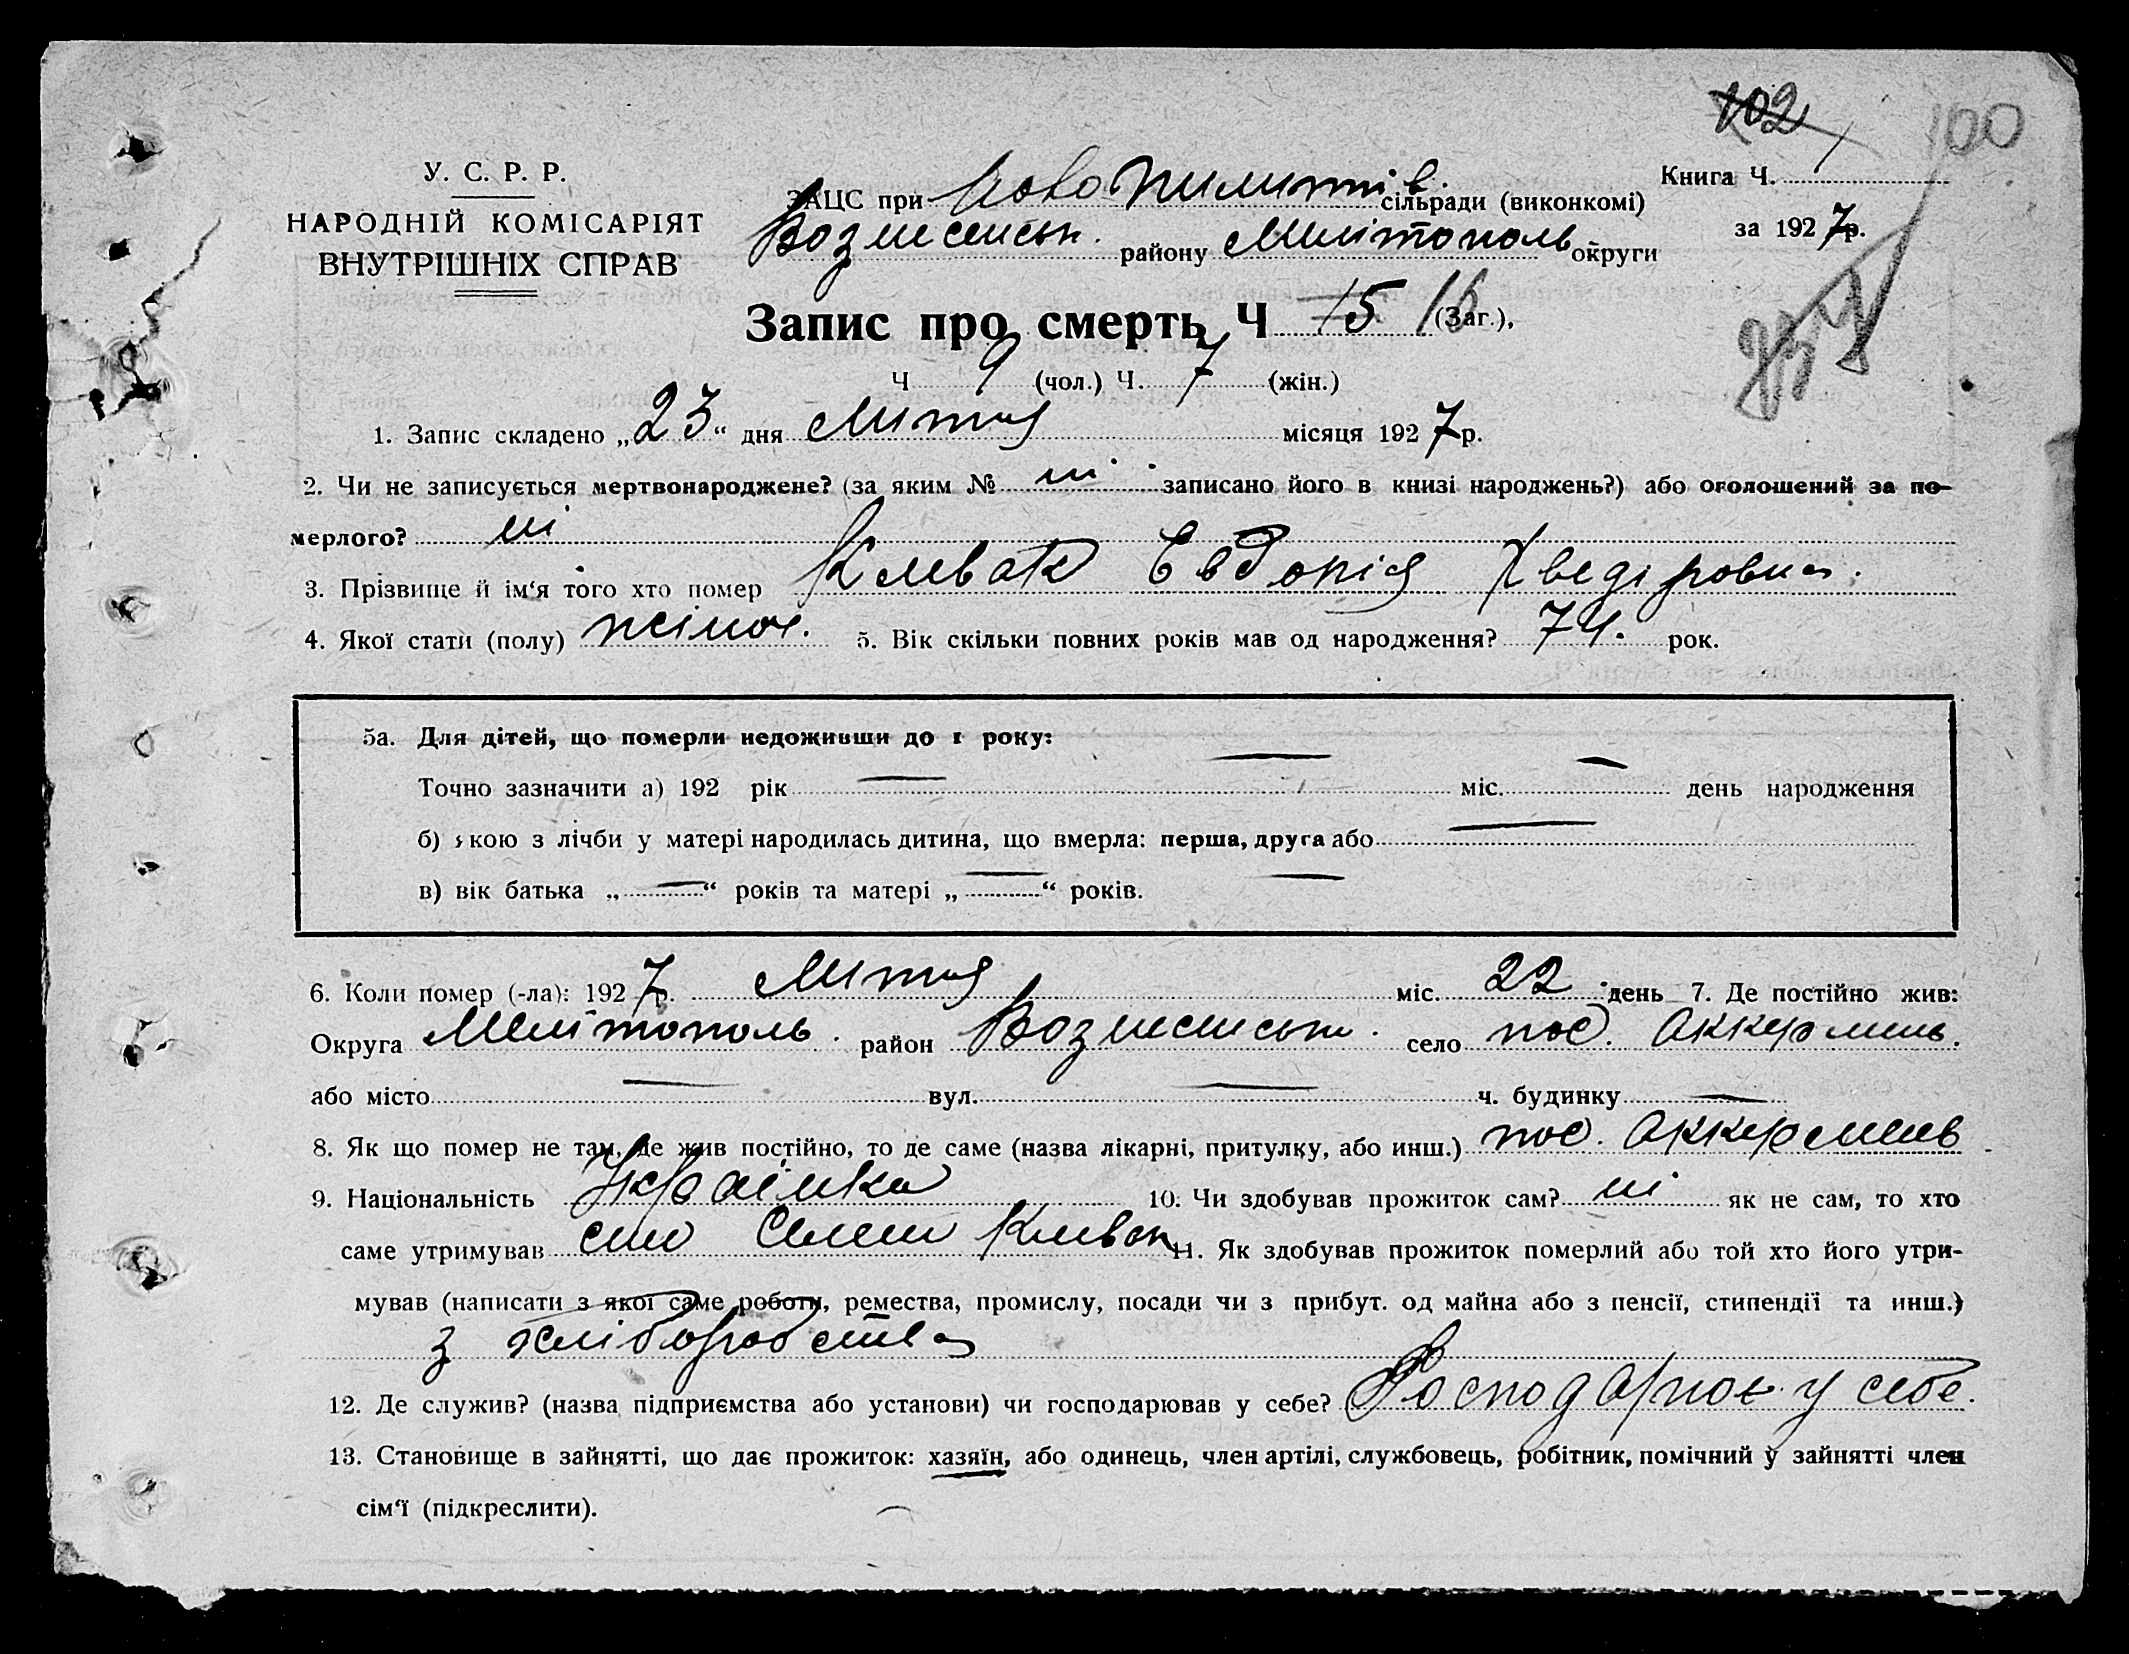 102 100
У. С. Р. Р.
НАРОДНІЙ КОМІСАРІЯТ
ВНУТРІШНІХ СПРАВ
ЗАЦС при Ново Пилипів. сільради (виконкомі)
Вознесенськ. району Мелітополь округи
Книга Ч.
за 1927 р.
Запис про смерть Ч 15 16 (Заг.),
Ч 9 (чол.) Ч. 7 (жін.)
1. Запис складено „23“ дня Лютня місяця 1927 р.
2. Чи не записується мертвонароджене? (за яким № ні записано його в книзі народжень?) або оголошений за по-
мерлого? ні
3. Прізвище й ім‘я того хто помер Клевак Евдокія Хведіровна.
4. Якої стати (полу) жіноч. 5. Вік скільки повних років мав од народження? 74. рок.
5а. Для дітей, що померли недоживши до 1 року:
Точно зазначити а) 192 рік — міс. — день народження
б) якою з лічби у матері народилась дитина, що вмерла: перша, друга або —
в) вік батька „—“ років та матері „—“ років.
6. Коли помер (-ла): 1927 р. Лютня міс. 22 день 7. Де постійно жив:
Округа Мелітополь. район Вознесенськ. село пос. Аккермень.
або місто — вул. — ч. будинку —
8. Як що помер не там, де жив постійно, то де саме (назва лікарні, притулку, або инш.) пос. Аккермень
9. Національність Українка 10. Чи здобував прожиток сам? ні як не сам, то хто
саме утримував син Семен Клевак 11. Як здобував прожиток померлий або той хто його утри-
мував (написати з якої саме роботи, ремества, промислу, посади чи з прибут. од майна або з пенсії, стипендії та инш.)
з хліборобства
12. Де служив? (назва підприємства або установи) чи господарював у себе? Господарює у себе.
13. Становище в зайнятті, що дає прожиток: хазяїн, або одинець, член артілі, службовець, робітник, помічний у зайнятті член
сім‘ї (підкреслити).